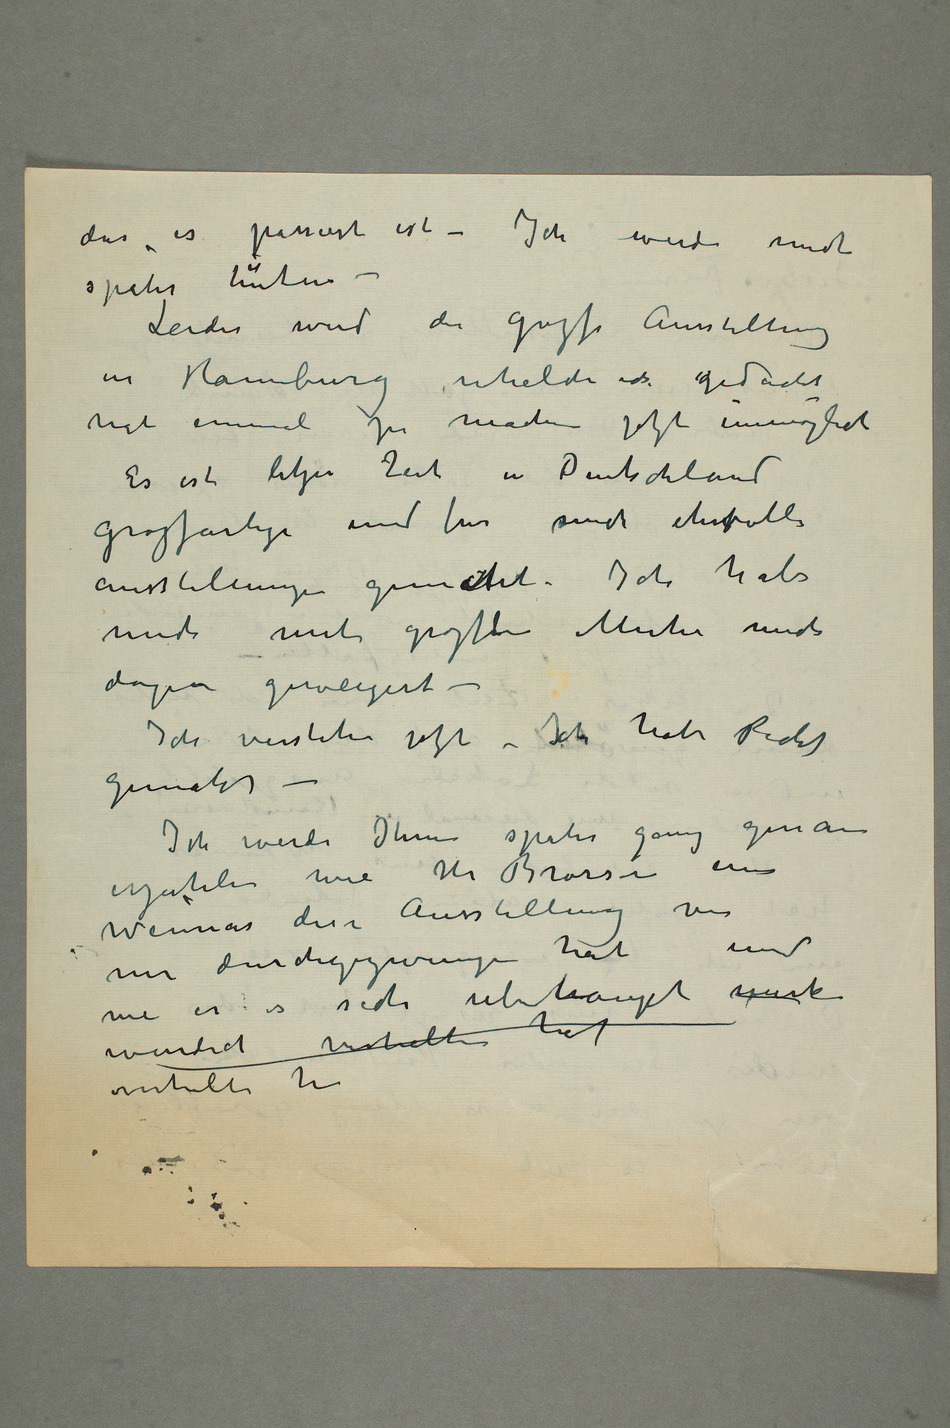 das es passiert ist – Ich werde mich
später hüten –
Leider wird die grozse Ausstellung
in Hamburg welche ich gedacht
hat einmal zu machen jetzt unmöglich
Es ist letzter Zeit in Deutschland
grozfartige und fur mich ehrvolle
ausstellungen gemacht. Ich habe
mich mit grozster Muhe mich
dagen geweigert –
Ich verstehe jetzt – Ich habe Recht
gemacht –
Ich werde Ihnen spater ganz genau
erzahlen wie Hr Brorson eine
diese Ausstellung von
mir durchgezwungen hat und
wie er es sich uberhaupt merk
wurdich verhalten hat
verhalte ha